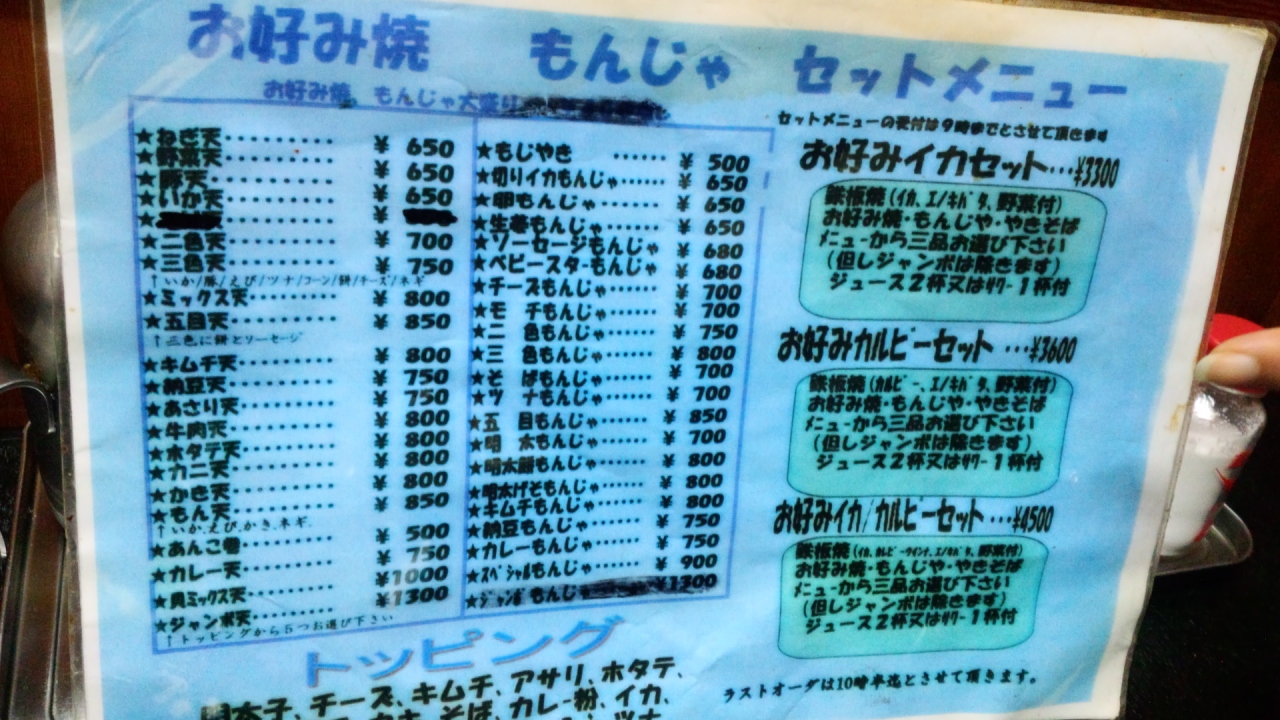 お好み焼 もんじゃ セットメニュー
お好み焼 もんじゃ大盛り
★ねぎ天・・・・・・・・・・ ¥ 650
★野菜天・・・・・・・・・・ ¥ 650
★豚天・・・・・・・・・・ ¥ 650
★いか天・・・・・・・・・・ ¥ 650
★ ・・・・・・・・・・ ¥
★二色天・・・・・・・・・・ ¥ 700
★三色天・・・・・・・・・・ ¥ 750
↑いか/豚/えび/ツナ/コーン/餅/チーズ/ネギ
★ミックス天・・・・・・・・ ¥ 800
★五目天・・・・・・・・・・ ¥ 850
↑三色に餅とソーセージ
★キムチ天・・・・・・・・・ ¥ 800
★納豆天・・・・・・・・・・ ¥ 750
★あさり天・・・・・・・・・ ¥ 750
★牛肉天・・・・・・・・・・ ¥ 800
★ホタテ天・・・・・・・・・ ¥ 800
★カニ天・・・・・・・・・・ ¥ 800
★かき天・・・・・・・・・・ ¥ 800
★もん天・・・・・・・・・・ ¥ 850
↑いか,えび,かき,ネギ.
★あんこ巻・・・・・・・・・ ¥ 500
★カレー天・・・・・・・・・ ¥ 750
★貝ミックス天・・・・・・・ ¥1000
★ジャンボ天・・・・・・・・ ¥1300
↑トッピングから５つお選び下さい
★もじやき ・・・・・・ ¥ 500
★切りイカもんじゃ・・・・・・ ¥ 650
★卵もんじゃ・・・・・・ ¥ 650
★生姜もんじゃ・・・・・・ ¥ 650
★ソーセージもんじゃ・・・・・・ ¥ 680
★ベビースターもんじゃ・・・・・・ ¥ 680
★チーズもんじゃ・・・・・・ ¥ 700
★モ チもんじゃ・・・・・・ ¥ 700
★二 色もんじゃ・・・・・・ ¥ 750
★三 色もんじゃ・・・・・・ ¥ 800
★そ ばもんじゃ・・・・・・ ¥ 700
★ツ ナもんじゃ・・・・・・ ¥ 700
★五 目もんじゃ・・・・・・ ¥ 850
★明 太もんじゃ・・・・・・ ¥ 700
★明太餅もんじゃ・・・・・・ ¥ 800
★明太げそもんじゃ・・・・・・ ¥ 800
★キムチもんじゃ・・・・・・ ¥ 800
★納豆もんじゃ・・・・・・ ¥ 750
★カレーもんじゃ・・・・・・ ¥ 750
★スペシャルもんじゃ・・・・・・ ¥ 900
★ジャンボもんじゃ ¥1300
セットメニューの受付は９時までとさせて頂きます
お好みイカセット・・・¥3300
鉄板焼(イカ、エノキバタ、野菜付)
お好み焼・もんじや・やきそば
メニューから三品お選び下さい
(但しジャンボは除きます)
ジュース２杯又はサワー１杯付
お好みカルビーセット ・・・¥3600
鉄板焼(カルビー、エノキバタ、野菜付)
お好み焼・もんじや・やきそば
メニューから三品お選び下さい
(但しジャンボは除きます)
ジュース２杯又はサワー１杯付
お好みイカ/カルビーセット ・・・¥4500
鉄板焼(イカ、カルビーウインナ、エノキバタ、野菜付)
お好み焼・もんじや・やきそば
メニューから三品お選び下さい
(但しジャンボは除きます)
ジュース２杯又はサワー１杯付
ラストオーダは10時半迄とさせて頂きます。
トッピング
明太子、チーズ、キムチ、アサリ、ホタテ、
そば、カレー粉、イカ、
ツナ